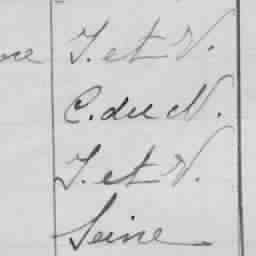 I. et V.
C. du N.
I. et V.
Seine